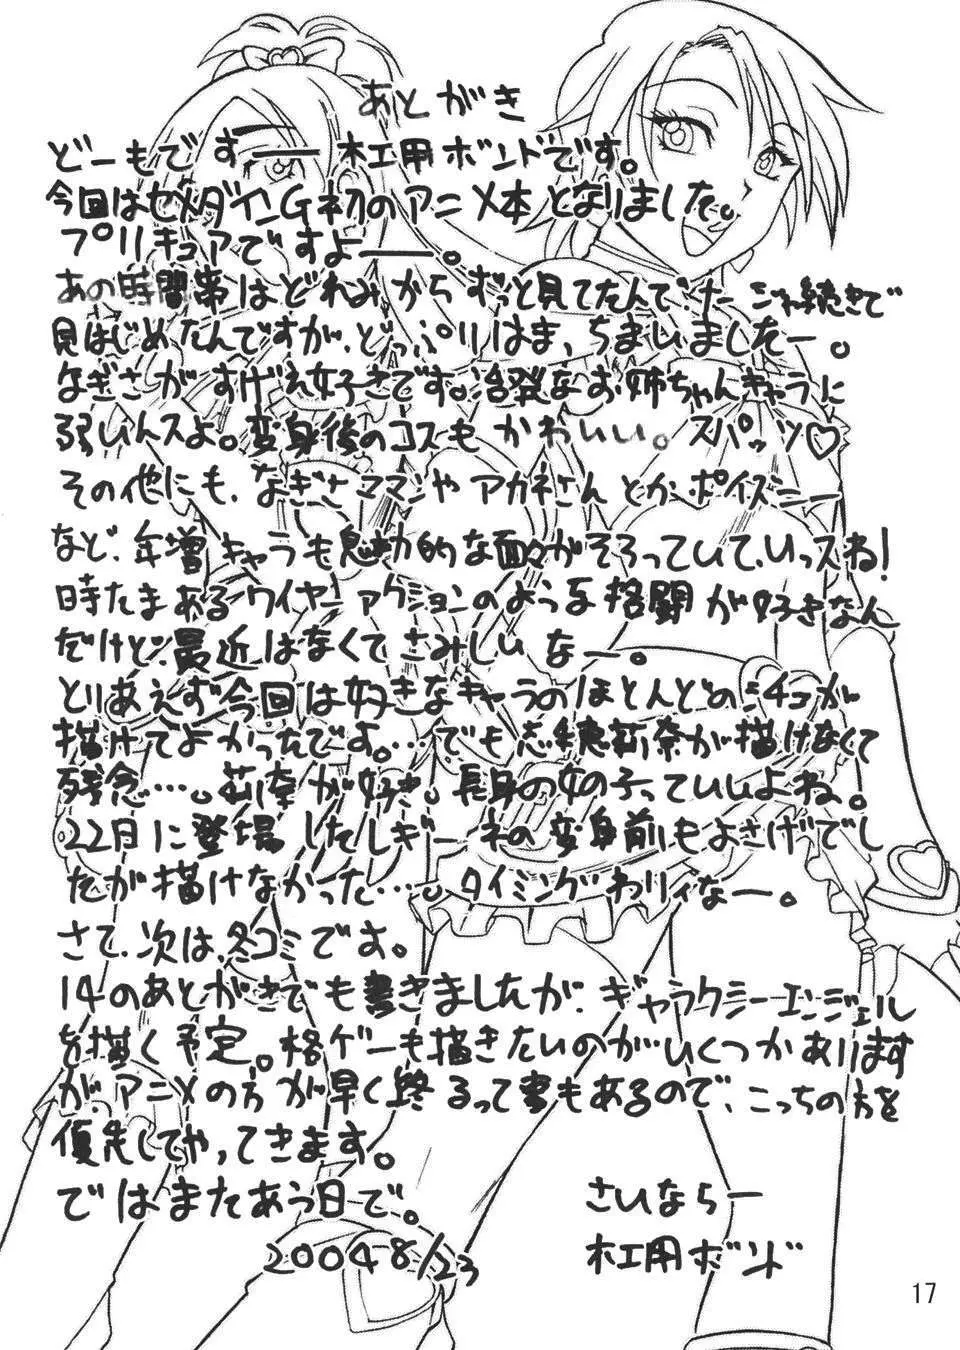 あとがき
どーもですー 木工用ボンドです。
今回はセメダインG初のアニメ本となりました。
プリキュアですよー。
あの時間帯はどれみからずっと見てたんでたー じゃ続きで
見はじめたんですが、どっぷりはま、ちまいましたー。
なぎさがすげえ好きです。活発なお姉ちゃんキャラに
弱いんスよ。変身後のコスもかわいい。スパッツ♡
その他にも、なぎさママンやアカネさんとかポイズニー
など、年増キャラも魅力的な面々がそろっていて、いっスね!
時たまあるワイヤーアクションのような格闘が好きなん
だけど、最近はなくてさみしいなー。
とりあえず今回は好きなキャラのほとんどのシチュが
描けてよかったです。…でも志穂莉奈が描けなくて
残念…。莉奈が好き。長身の女の子っていいよね。
22日に登場したレギーネの変身前もよさげでし
たが描けなかった…。タイミングわりィなー。
さて、次は、冬コミです。
14のあとがきでも書きましたが、ギャラクシーエンジェル
を描く予定。格ゲーも描きたいのがいくつかあります
が、アニメの方が早く終るって事もあるので、こっちの方を
優先してやってきます。
ではまたあう日で。
さいならー
2004 8/23
木工用ボンド
17